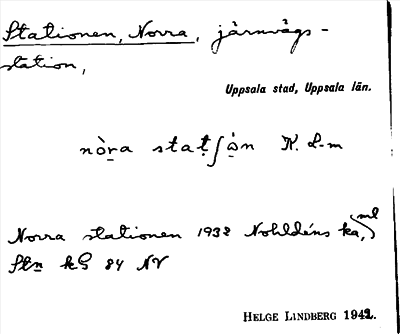 Stationen, Norra, järnvägs-
station,
Uppsala stad, Uppsala län.
nò̱ra staṭʃò̱n K. L-m
Norra stationen 1932 Nohldéns ka,
Stn 84 NV
HELGE LINDBERG 1942.